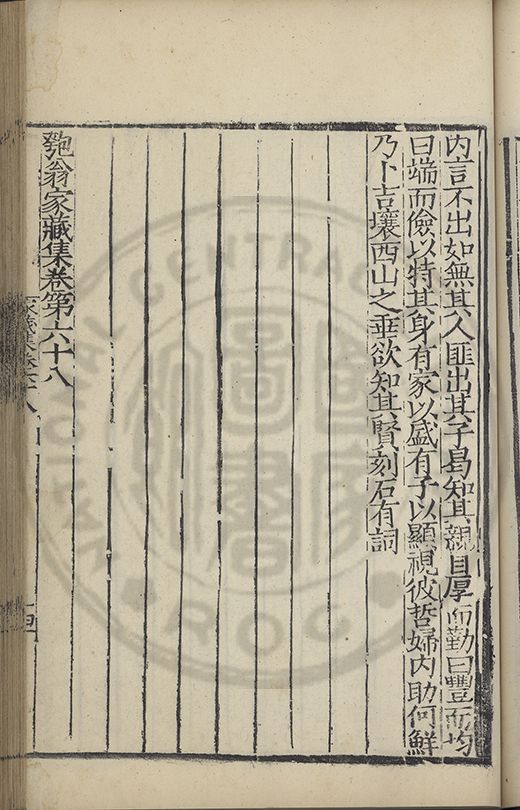 內言不出如無其人匪出其子曷知其親曰厚而勤曰豐而均
曰端而儉以特其身有家以盛有子以顯視彼哲婦內助何鮮
乃卜吉壤西山之垂欲知其賢刻石有詞
匏翁家藏集卷第六十八
NATIONAL CENTRAL
ROC